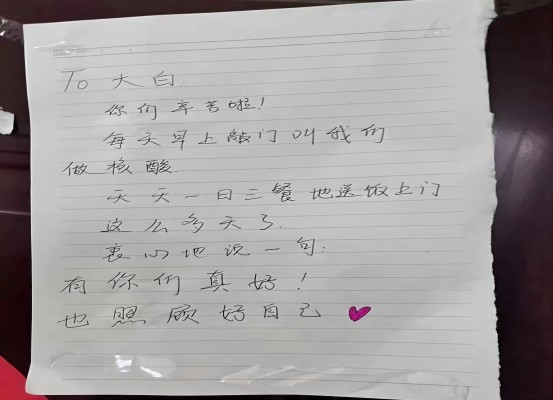 To 大白.
你们辛苦啦!
每天早上敲门叫我们
做核酸.
天天一日三餐地送饭上门
这么多天了.
衷心地说一句:
有你们真好!
也照顾好自己